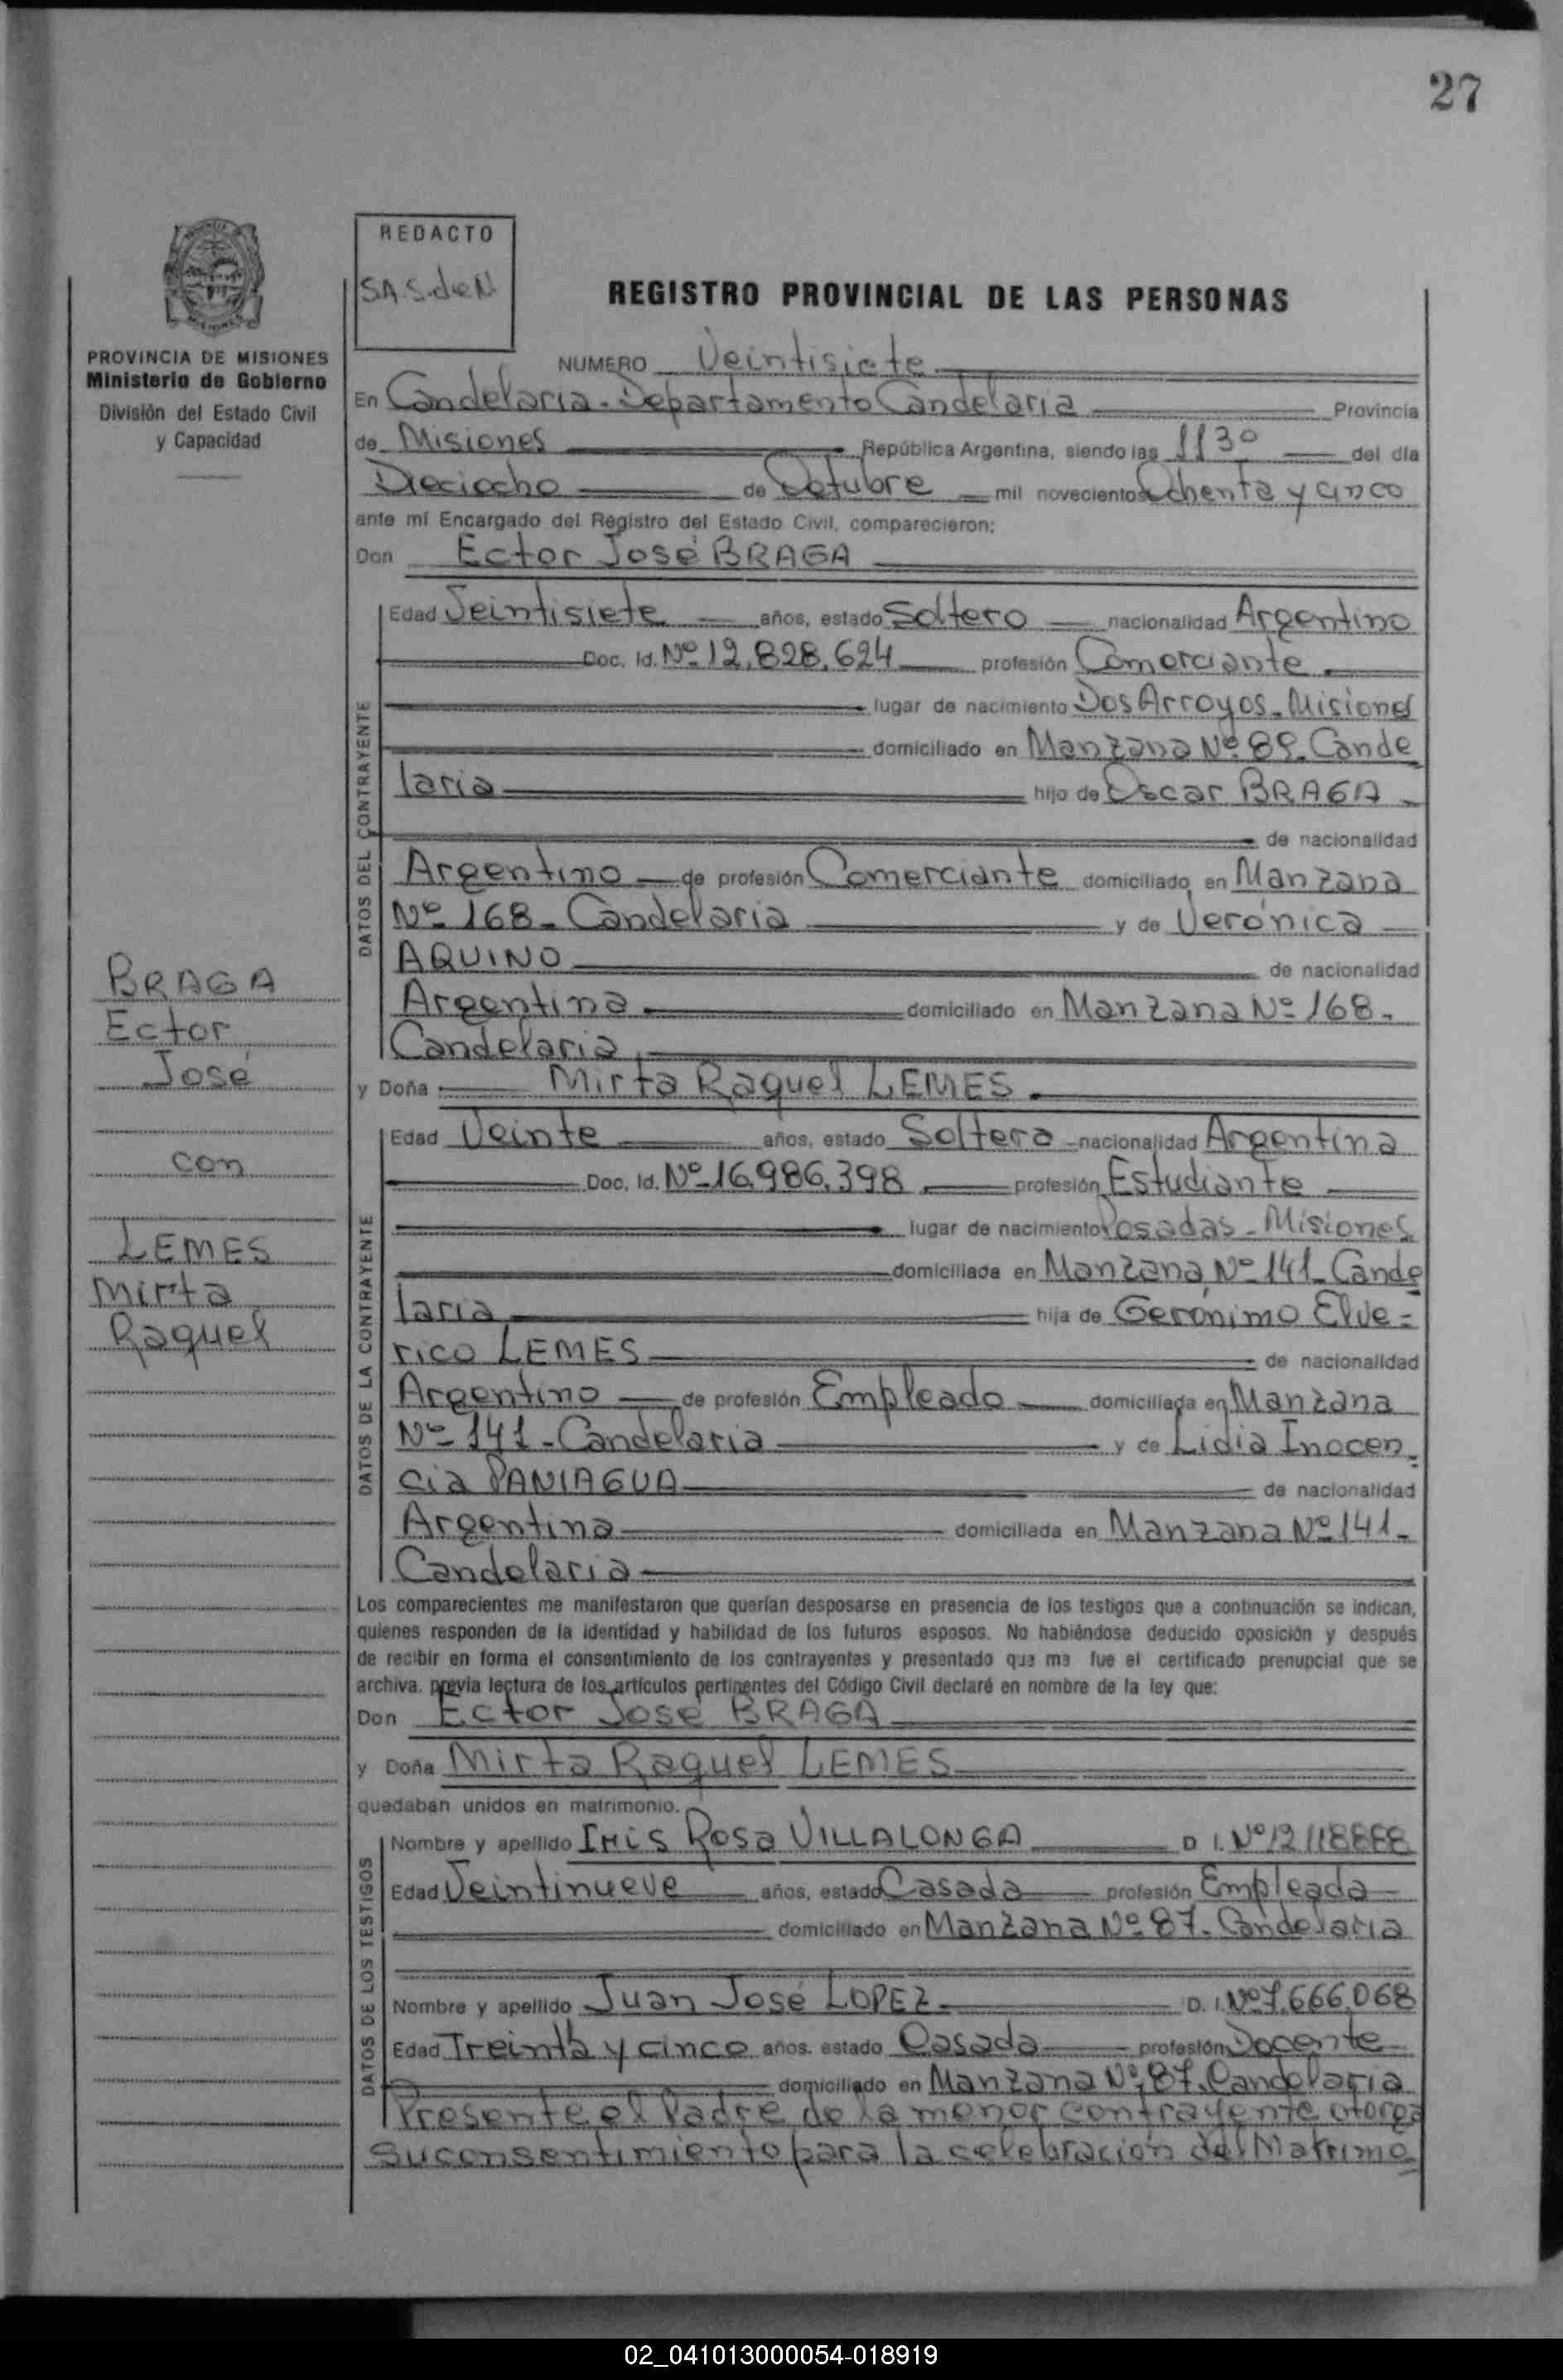 27
REDACTO
S.A.S.deN
REGISTRO PROVINCIAL DE LAS PERSONAS
PROVINCIA DE MISIONES
Ministerio de Gobierno
División del Estado Civil
y Capacidad
NUMERO Veintisiete
En Candelaria - Departamento Candelaria Provincia
de Misiones República Argentina, siendo las 1130 del día
Dieciocho de Octubre mil novecientos Ochenta y cinco
ante mí Encargado del Registro del Estado Civil, comparecieron:
Don Ector José BRAGA
DATOS DEL CONTRAYENTE
Edad Veintisiete años, estado Soltero nacionalidad Argentino
Doc. Id. Nº 12.828.624 profesión Comerciante
lugar de nacimiento Dos Arroyos - Misiones
domiciliado en Manzana Nº 89- Cande
laria hijo de Oscar BRAGA
de nacionalidad
Argentino de profesión Comerciante domiciliado en Manzana
Nº 168 - Candelaria y de Verónica
AQUINO de nacionalidad
Argentina domiciliado en Manzana Nº 168 -
Candelaria
BRAGA
Ector
José
con
LEMES
Mirta
Raquel
y Doña Mirta Raquel LEMES
DATOS DE LA CONTRAYENTE
Edad Veinte años, estado Soltera nacionalidad Argentina
Doc. Id. Nº 16.986.398 profesión Estudiante
lugar de nacimiento Posadas - Misiones
domiciliada en Manzana Nº 141 - Cande
laria hija de Gerónimo Elve=
rico LEMES de nacionalidad
Argentino de profesión Empleado domiciliada en Manzana
Nº 141 - Candelaria y de Lidia Inocen=
cia PANIAGUA de nacionalidad
Argentina domiciliada en Manzana Nº 141 -
Candelaria
Los comparecientes me manifestaron que querían desposarse en presencia de los testigos que a continuación se indican,
quienes responden de la identidad y habilidad de los futuros esposos. No habiéndose deducido oposición y después
de recibir en forma el consentimiento de los contrayentes y presentado que me fue el certificado prenupcial que se
archiva. previa lectura de los artículos pertinentes del Código Civil declaré en nombre de la ley que:
Don Ector José BRAGA
y Doña Mirta Raquel LEMES
quedaban unidos en matrimonio.
DATOS DE LOS TESTIGOS
Nombre y apellido Rosa VILLALONGA D. I. Nº
Edad Veintinueve años, estado Casada profesión Empleada
domiciliado en Manzana Nº 87 - Candelaria
Nombre y apellido Juan José LOPEZ D. I. Nº 7.666.068
Edad Treinta y cinco años. estado Casado profesión Docente
domiciliado en Manzana Nº 87. Candelaria
Presente el Padre de la menor contrayente otorga
su consentimiento para la celebración del Matrimo
02_041013000054-018919